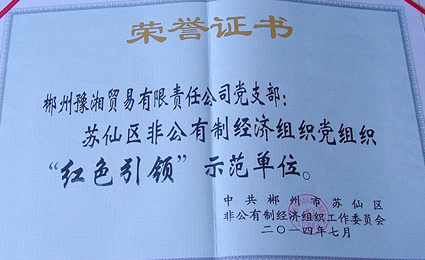 荣誉证书
郴州豫湘贸易有限责任公司党支部：
苏仙区非公有制经济组织党组织
“红色引领”示范单位。
中共郴州市苏仙区
非公有制经济组织工作委员会
二〇一四年七月